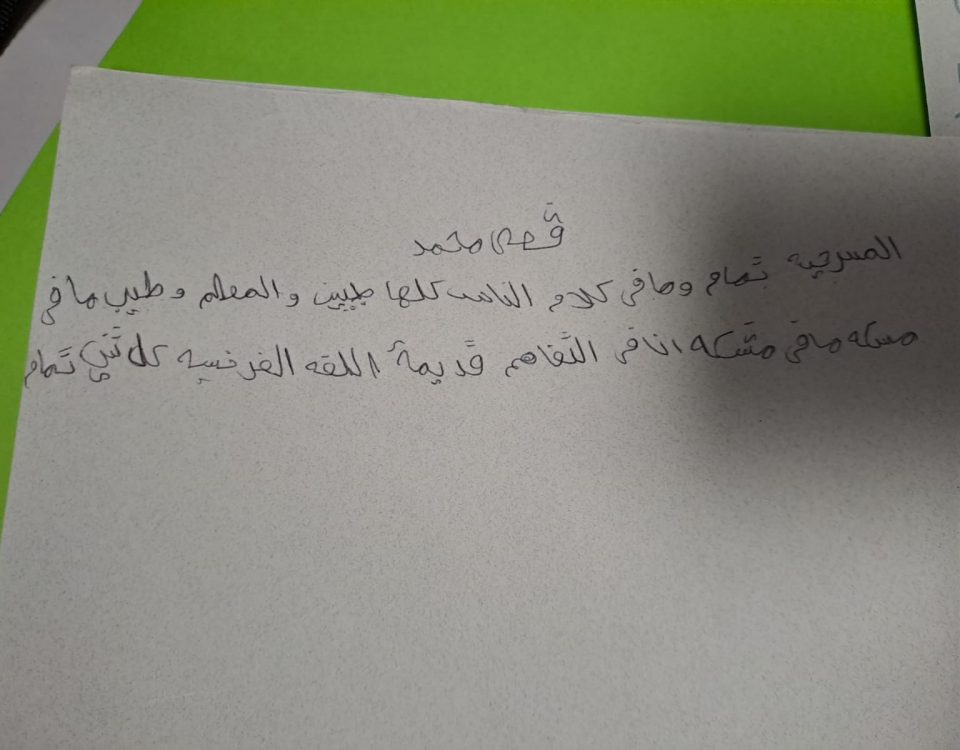 قصي محمد
المسرحيه تمام ومافي كلام الناس كلها طيبين والمعلم وطيب مافي
مسكله مافي مشكله انافي التفاهم قديمة اللغه الفرنسيه كل شي تمام